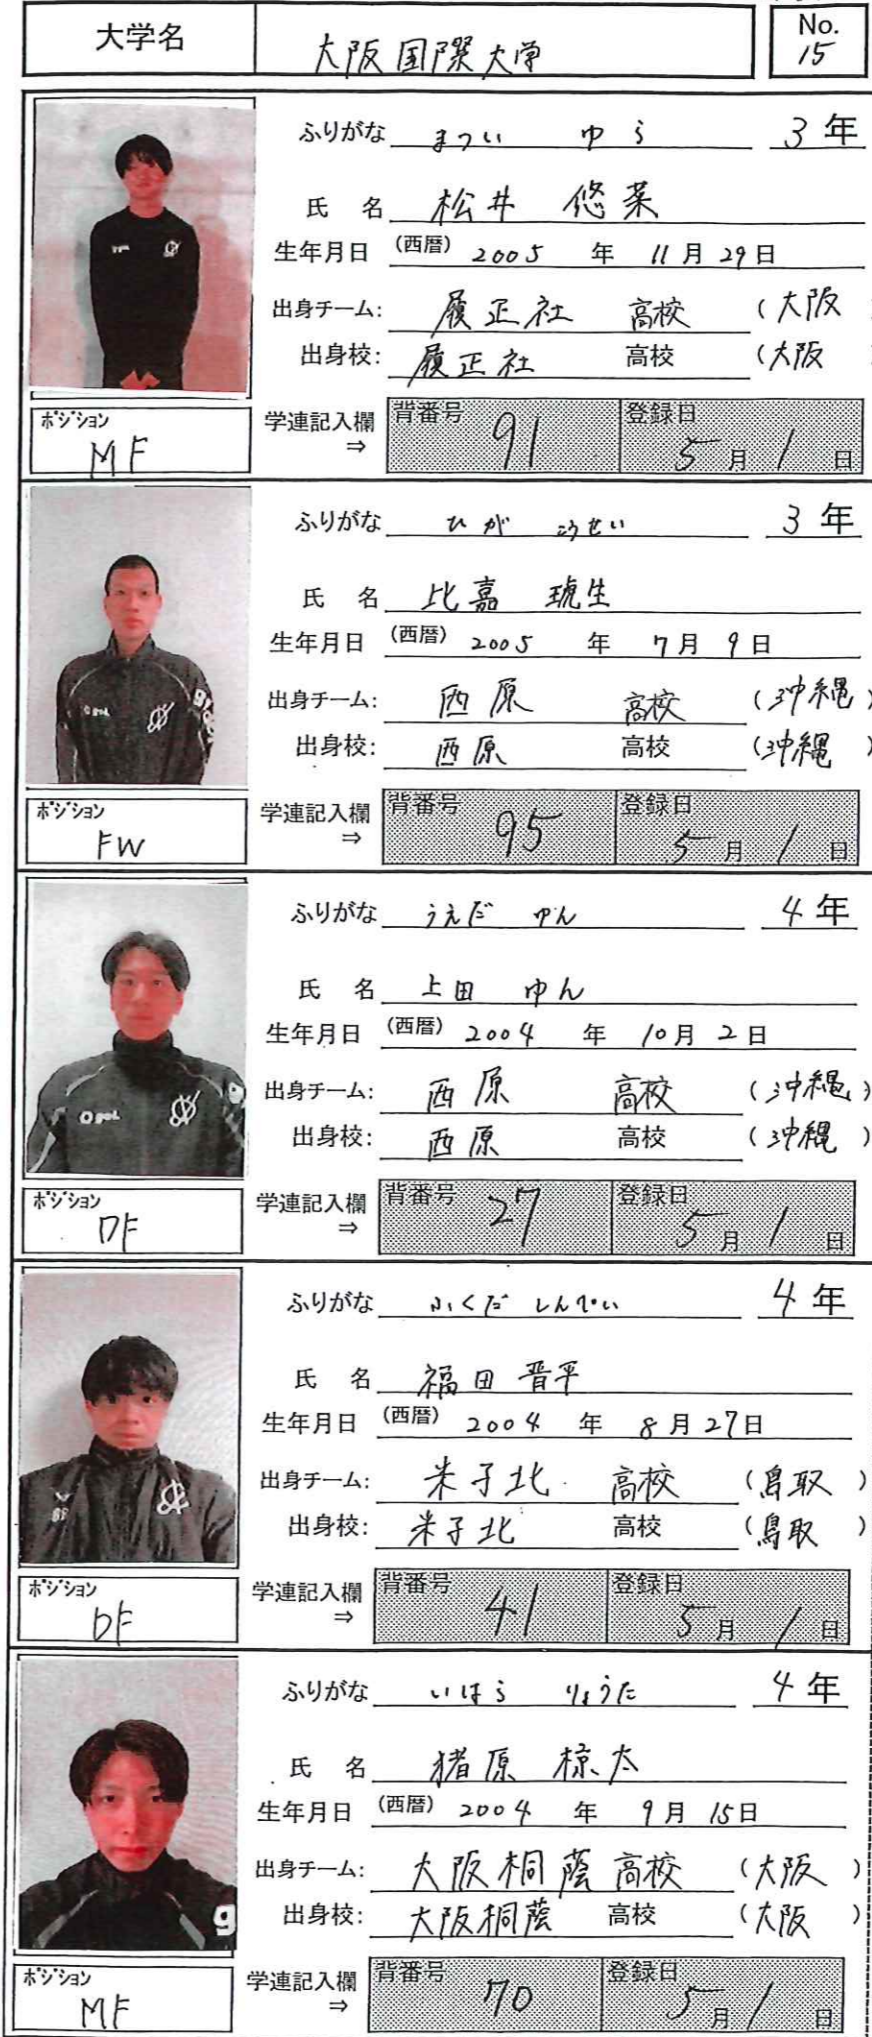 大学名 大阪国際大学 No. 15
ふりがな まつい ゆら 3年
氏 名 松井 悠菜
生年月日 (西暦) 2005 年 11月29日
出身チーム: 履正社 高校 (大阪
出身校: 履正社 高校 (大阪
ポジション MF 学連記入欄 ⇒ 背番号 91 登録日 5月1日
ふりがな ひが こうせい 3年
氏 名 比嘉 琥生
生年月日 (西暦) 2005 年 7月9日
出身チーム: 西原 高校 (沖縄)
出身校: 西原 高校 (沖縄)
ポジション FW 学連記入欄 ⇒ 背番号 95 登録日 5月1日
ふりがな うえだ ゆん 4年
氏 名 上田 ゆん
生年月日 (西暦) 2004 年 10月2日
出身チーム: 西原 高校 (沖縄)
出身校: 西原 高校 (沖縄)
ポジション DF 学連記入欄 ⇒ 背番号 27 登録日 5月1日
ふりがな ふくだ しんぺい 4年
氏 名 福田 晋平
生年月日 (西暦) 2004 年 8月27日
出身チーム: 米子北 高校 (鳥取)
出身校: 米子北 高校 (鳥取)
ポジション DF 学連記入欄 ⇒ 背番号 41 登録日 5月1日
ふりがな いはら りょうた 4年
氏 名 猪原 椋太
生年月日 (西暦) 2004 年 9月15日
出身チーム: 大阪桐蔭 高校 (大阪)
出身校: 大阪桐蔭 高校 (大阪)
ポジション MF 学連記入欄 ⇒ 背番号 70 登録日 5月1日